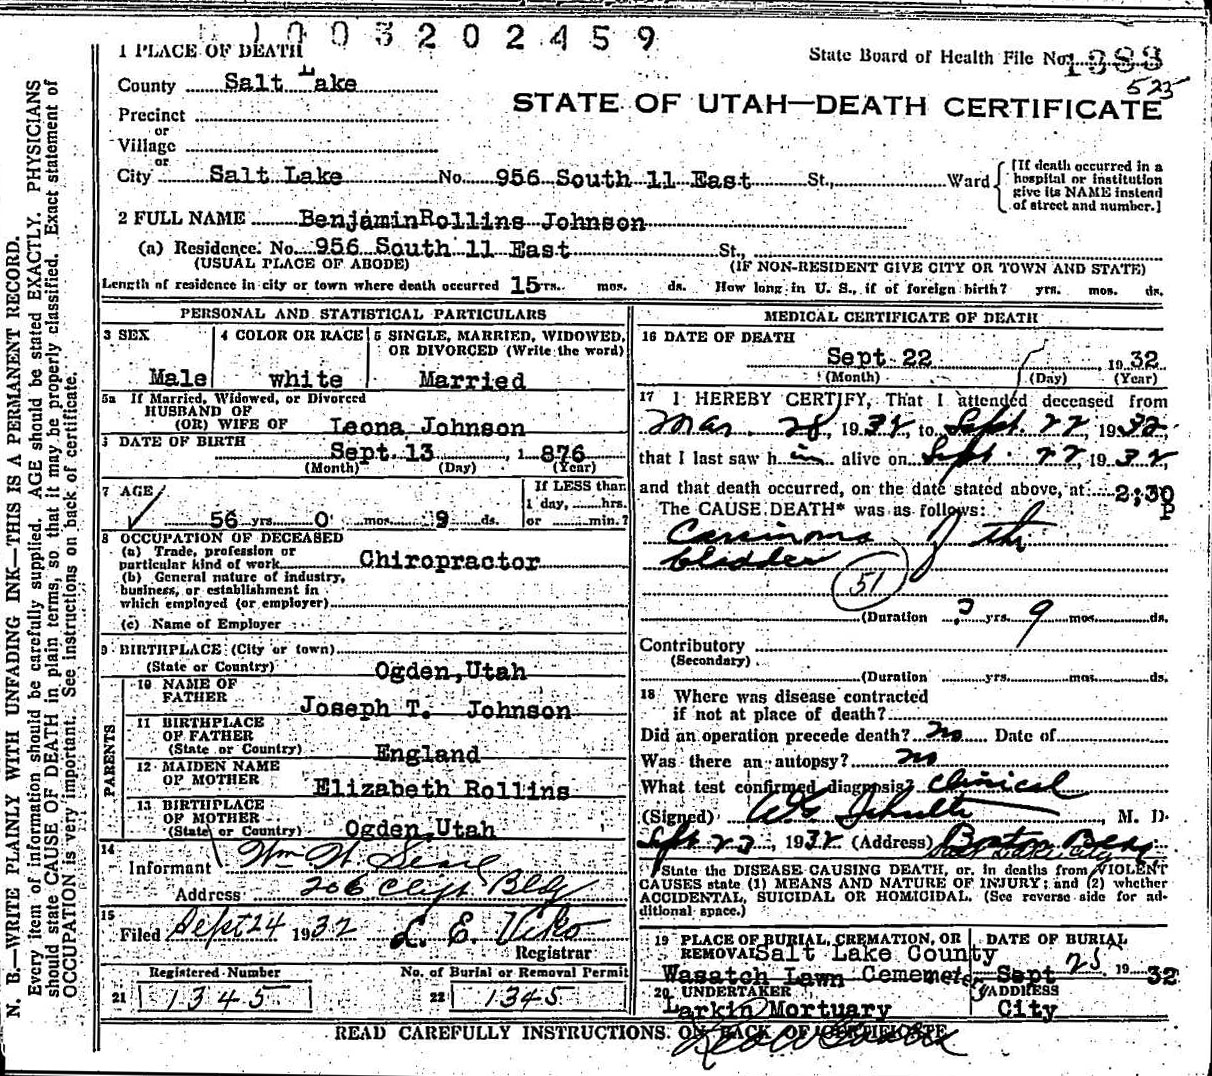 1003202459
1 PLACE OF DEATH
State Board of Health File No. 1383
525
County Salt Lake
STATE OF UTAH—DEATH CERTIFICATE
Precinct
or
Village
or
City Salt Lake No. 956 South 11 East St., Ward
[If death occurred in a hospital or institution give its NAME instead of street and number.]
2 FULL NAME BenjaminRollins Johnson
(a) Residence. No. 956 South 11 East St.,
(USUAL PLACE OF ABODE) (IF NON-RESIDENT GIVE CITY OR TOWN AND STATE)
Length of residence in city or town where death occurred 15 yrs. mos. ds. How long in U. S., if of foreign birth? yrs. mos. ds.
PERSONAL AND STATISTICAL PARTICULARS
3 SEX 4 COLOR OR RACE 5 SINGLE, MARRIED, WIDOWED, OR DIVORCED (Write the word)
Male white Married
5a If Married, Widowed, or Divorced
HUSBAND OF
(OR) WIFE OF Leona Johnson
DATE OF BIRTH
Sept. 13, 1876
(Month) (Day) (Year)
7 AGE
If LESS than 1 day, hrs. or min.?
56 yrs. 0 mos. 9 ds.
8 OCCUPATION OF DECEASED
(a) Trade, profession or particular kind of work Chiropractor
(b) General nature of industry, business, or establishment in which employed (or employer)
(c) Name of Employer
9 BIRTHPLACE (City or town)
(State or Country) Ogden, Utah
PARENTS
10 NAME OF FATHER Joseph T. Johnson
11 BIRTHPLACE OF FATHER
(State or Country) England
12 MAIDEN NAME OF MOTHER Elizabeth Rollins
13 BIRTHPLACE OF MOTHER
(State or Country) Ogden, Utah
14
Informant Wm H
Address 206 Clift Bldg
15
Filed Sept 24 1932 L. E. Viko
Registrar
Registered Number No. of Burial or Removal Permit
21 1345 22 1345
MEDICAL CERTIFICATE OF DEATH
16 DATE OF DEATH
Sept 22, 1932
(Month) (Day) (Year)
17 I HEREBY CERTIFY, That I attended deceased from
Mar. 28, 1932, to Sept. 22, 1932,
that I last saw him alive on Sept. 22, 1932,
and that death occurred, on the date stated above, at 2:30
P
The CAUSE DEATH* was as follows:
Carcinoma of the
bladder
51
(Duration ? yrs. 9 mos. ds.
Contributory
(Secondary)
(Duration yrs. mos. ds.
18 Where was disease contracted
if not at place of death?
Did an operation precede death? no Date of
Was there an autopsy? no
What test confirmed diagnosis? Clinical
(Signed) , M. D.
Sept 23, 1932 (Address) Boston Bldg.
Salt Lake City
*State the DISEASE CAUSING DEATH, or, in deaths from VIOLENT
CAUSES state (1) MEANS AND NATURE OF INJURY; and (2) whether
ACCIDENTAL, SUICIDAL OR HOMICIDAL. (See reverse side for ad-
ditional space.)
19 PLACE OF BURIAL, CREMATION, OR REMOVAL DATE OF BURIAL
Salt Lake County
Wasatch Lawn Cememetery Sept 25 1932
20 UNDERTAKER ADDRESS
Larkin Mortuary City
READ CAREFULLY INSTRUCTIONS ON BACK OF CERTIFICATE
N. B.—WRITE PLAINLY WITH UNFADING INK—THIS IS A PERMANENT RECORD.
Every item of information should be carefully supplied. AGE should be stated EXACTLY. PHYSICIANS
should state CAUSE OF DEATH in plain terms, so that it may be properly classified. Exact statement of
OCCUPATION is very important. See instructions on back of certificate.